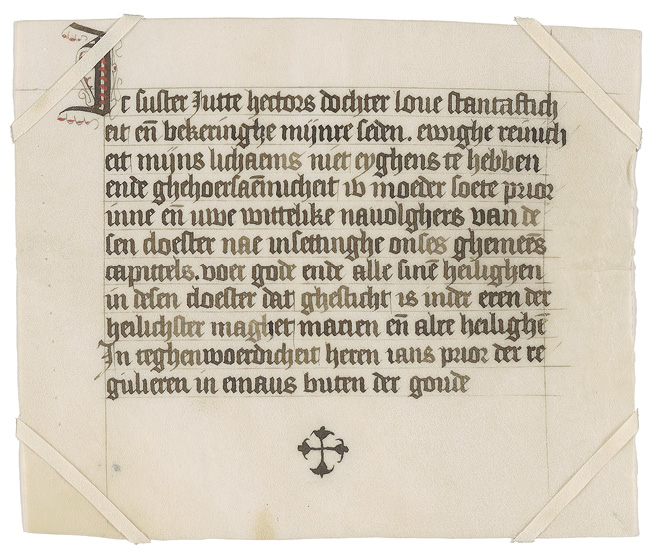 Ic suster Jutte hectors dochter loue stantaftich
eit eñ bekeringhe mijnre seden. ewighe reinich
eit mijns lichaems niet eyghens te hebben
ende ghehoersaem̃icheit iv moeder soete prior
inne eñ uwe wittelike navolghers van de
sen cloester nae insettinghe onses ghemeẽs
capittels. voer gode ende alle sinẽ heilighen
in desen cloester dat ghesticht is inder eren der
heilichster maghet marien eñ alre heilighẽ
In teghenwoerdicheit heren ians prior der re
gulieren in emaus buten der goude